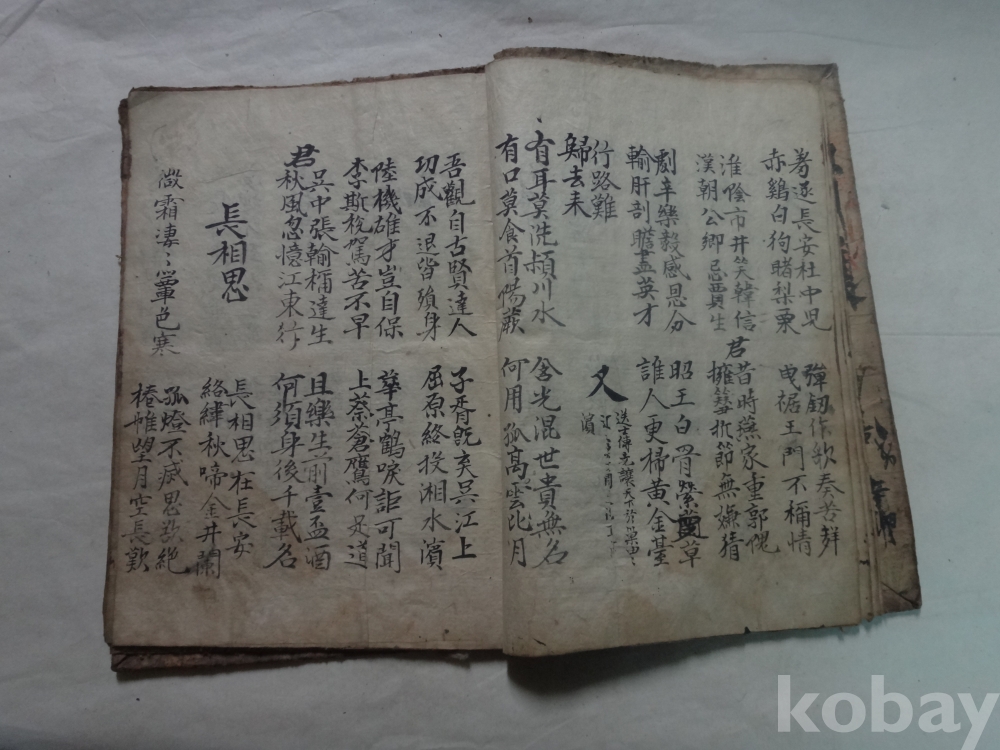 羞逐長安杜中児
赤鷄白狗賭梨栗
彈釼作歌奏苦聲
曳裾王門不稱情
淮陰市井笑韓信
漢朝公卿忌賈生
君昔時燕家重郭隗
擁篲折節無嫌猜
劇辛樂毅感恩分
輸肝剖膽盡英才
昭王白骨縈蔓草
誰人更掃黃金臺
行路難
歸去来
又
逸士傳堯讓天下於巢由
濱
有耳莫洗頴川水
有口莫食首陽蕨
含光混世貴無名
何用孤高雲比月
吾觀自古賢達人
功成不退皆殞身
子胥旣弃吳江上
屈原終投湘水濱
陸機碓才豈自保
李斯稅駕苦不早
華亭鶴唳詎可聞
上蔡蒼鷹何足道
君吳中張翰稱達生
秋風忽憶江東行
且樂生前壹盃酒
何須身後千載名
長相思
長相思在長安
絡緯秋啼金井闌
微霜凄〻簟色寒
孤燈不滅思欲絶
捲帷望月空長歎
kobay